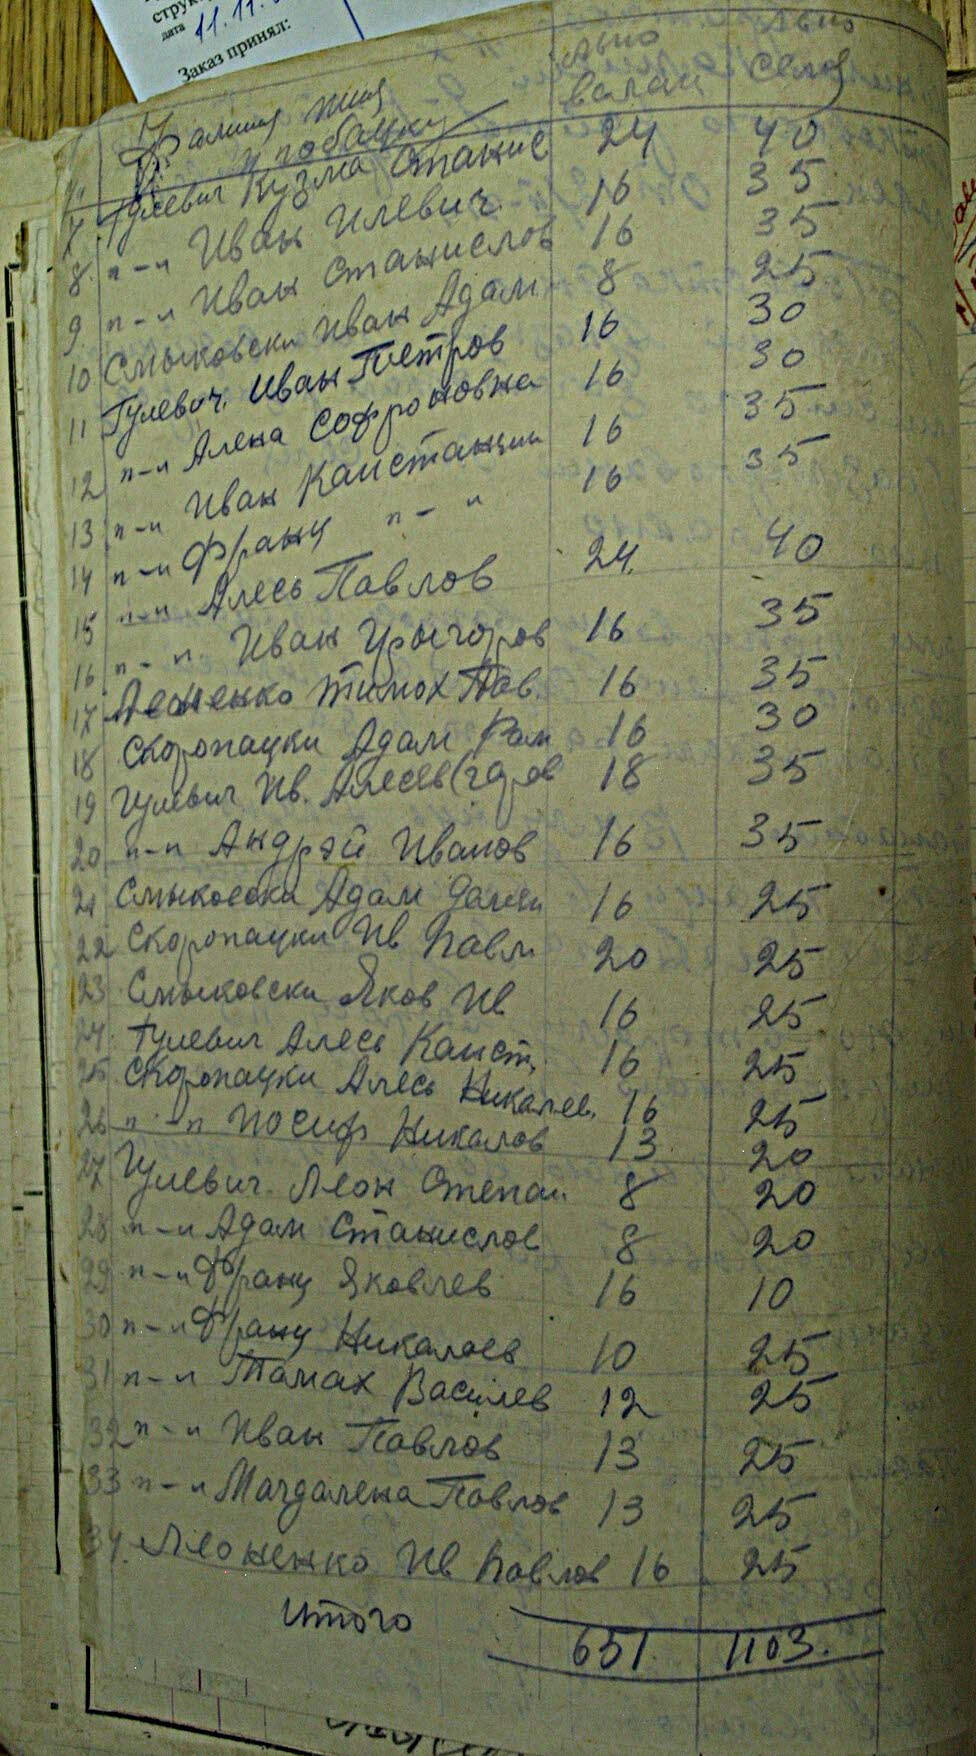 струк
дата 11.11.
Заказ принял:
Фамилия имя
льно
волок
сена
7 Гулевич Кузма Станис 24 40
8 "-" Иван Илевич 16 35
9 "-" Иван Станислов 16 35
10 Смыковски Иван Адам 8 25
11 Гулевич Иван Петров 16 30
12 "-" Алена Софроновна 16 30
13 "-" Иван Канстанци 16 35
14 "-" Франц "-" 16 35
15 "-" Алесь Павлов 24 40
16 "-" Иван Грыгоров 16 35
17 Леоненко Тимох Пав. 16 35
18 Скоропацки Адам Рам 16 30
19 Гулевич Ив. Алесев 18 35
20 "-" Андрэй Иванов 16 35
21 Смыковски Адам 16 25
22 Скоропацки Ив Павл 20 25
23 Смыковски Яков Ив 16 25
24 Гулевич Алесь Канст. 16 25
25 Скоропацки Алесь Никалев. 16 25
26 "-" Иосиф Никалов 13 20
27 Гулевич Леон Степан 8 20
28 "-" Адам Станислов 8 20
29 "-" Франц Яковлев 16 10
30 "-" Франц Никалаев 10 25
31 "-" Тамах Васлев 12 25
32 "-" Иван Павлов 13 25
33 "-" Магдалена Павлов 13 25
34. Леоненко Ив Павлов 16 25
Итого 651 1103.